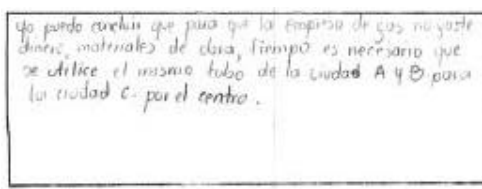 yo puedo concluir que para que la empresa de gas no gaste
dinero, materiales de obra, tiempo es necesario que
se utilice el mismo tubo de la ciudad A y B para
la ciudad C. por el centro.